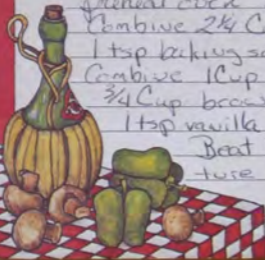 Oatmeal Cook
Combine 2 1/4 C
1 tsp baking so
Combine 1 Cup
3/4 Cup brow
1 tsp vanilla
Beat
ture